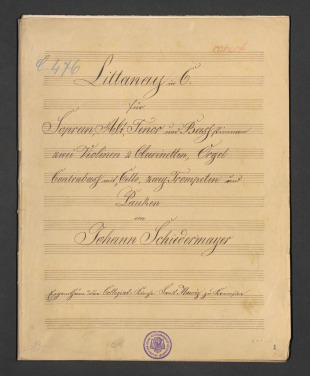 C. 476
Littaney in C.
für
Sopran, Alt, Tenor und Bass Stimmen
zwei Violinen 2 Clarinetten, Orgel
Contrabass und Cello, zwey Trompeten und
Pauken
von
Johann Schiedermayer
Eigenthum der Collegiat Kirche Sanct zu
1